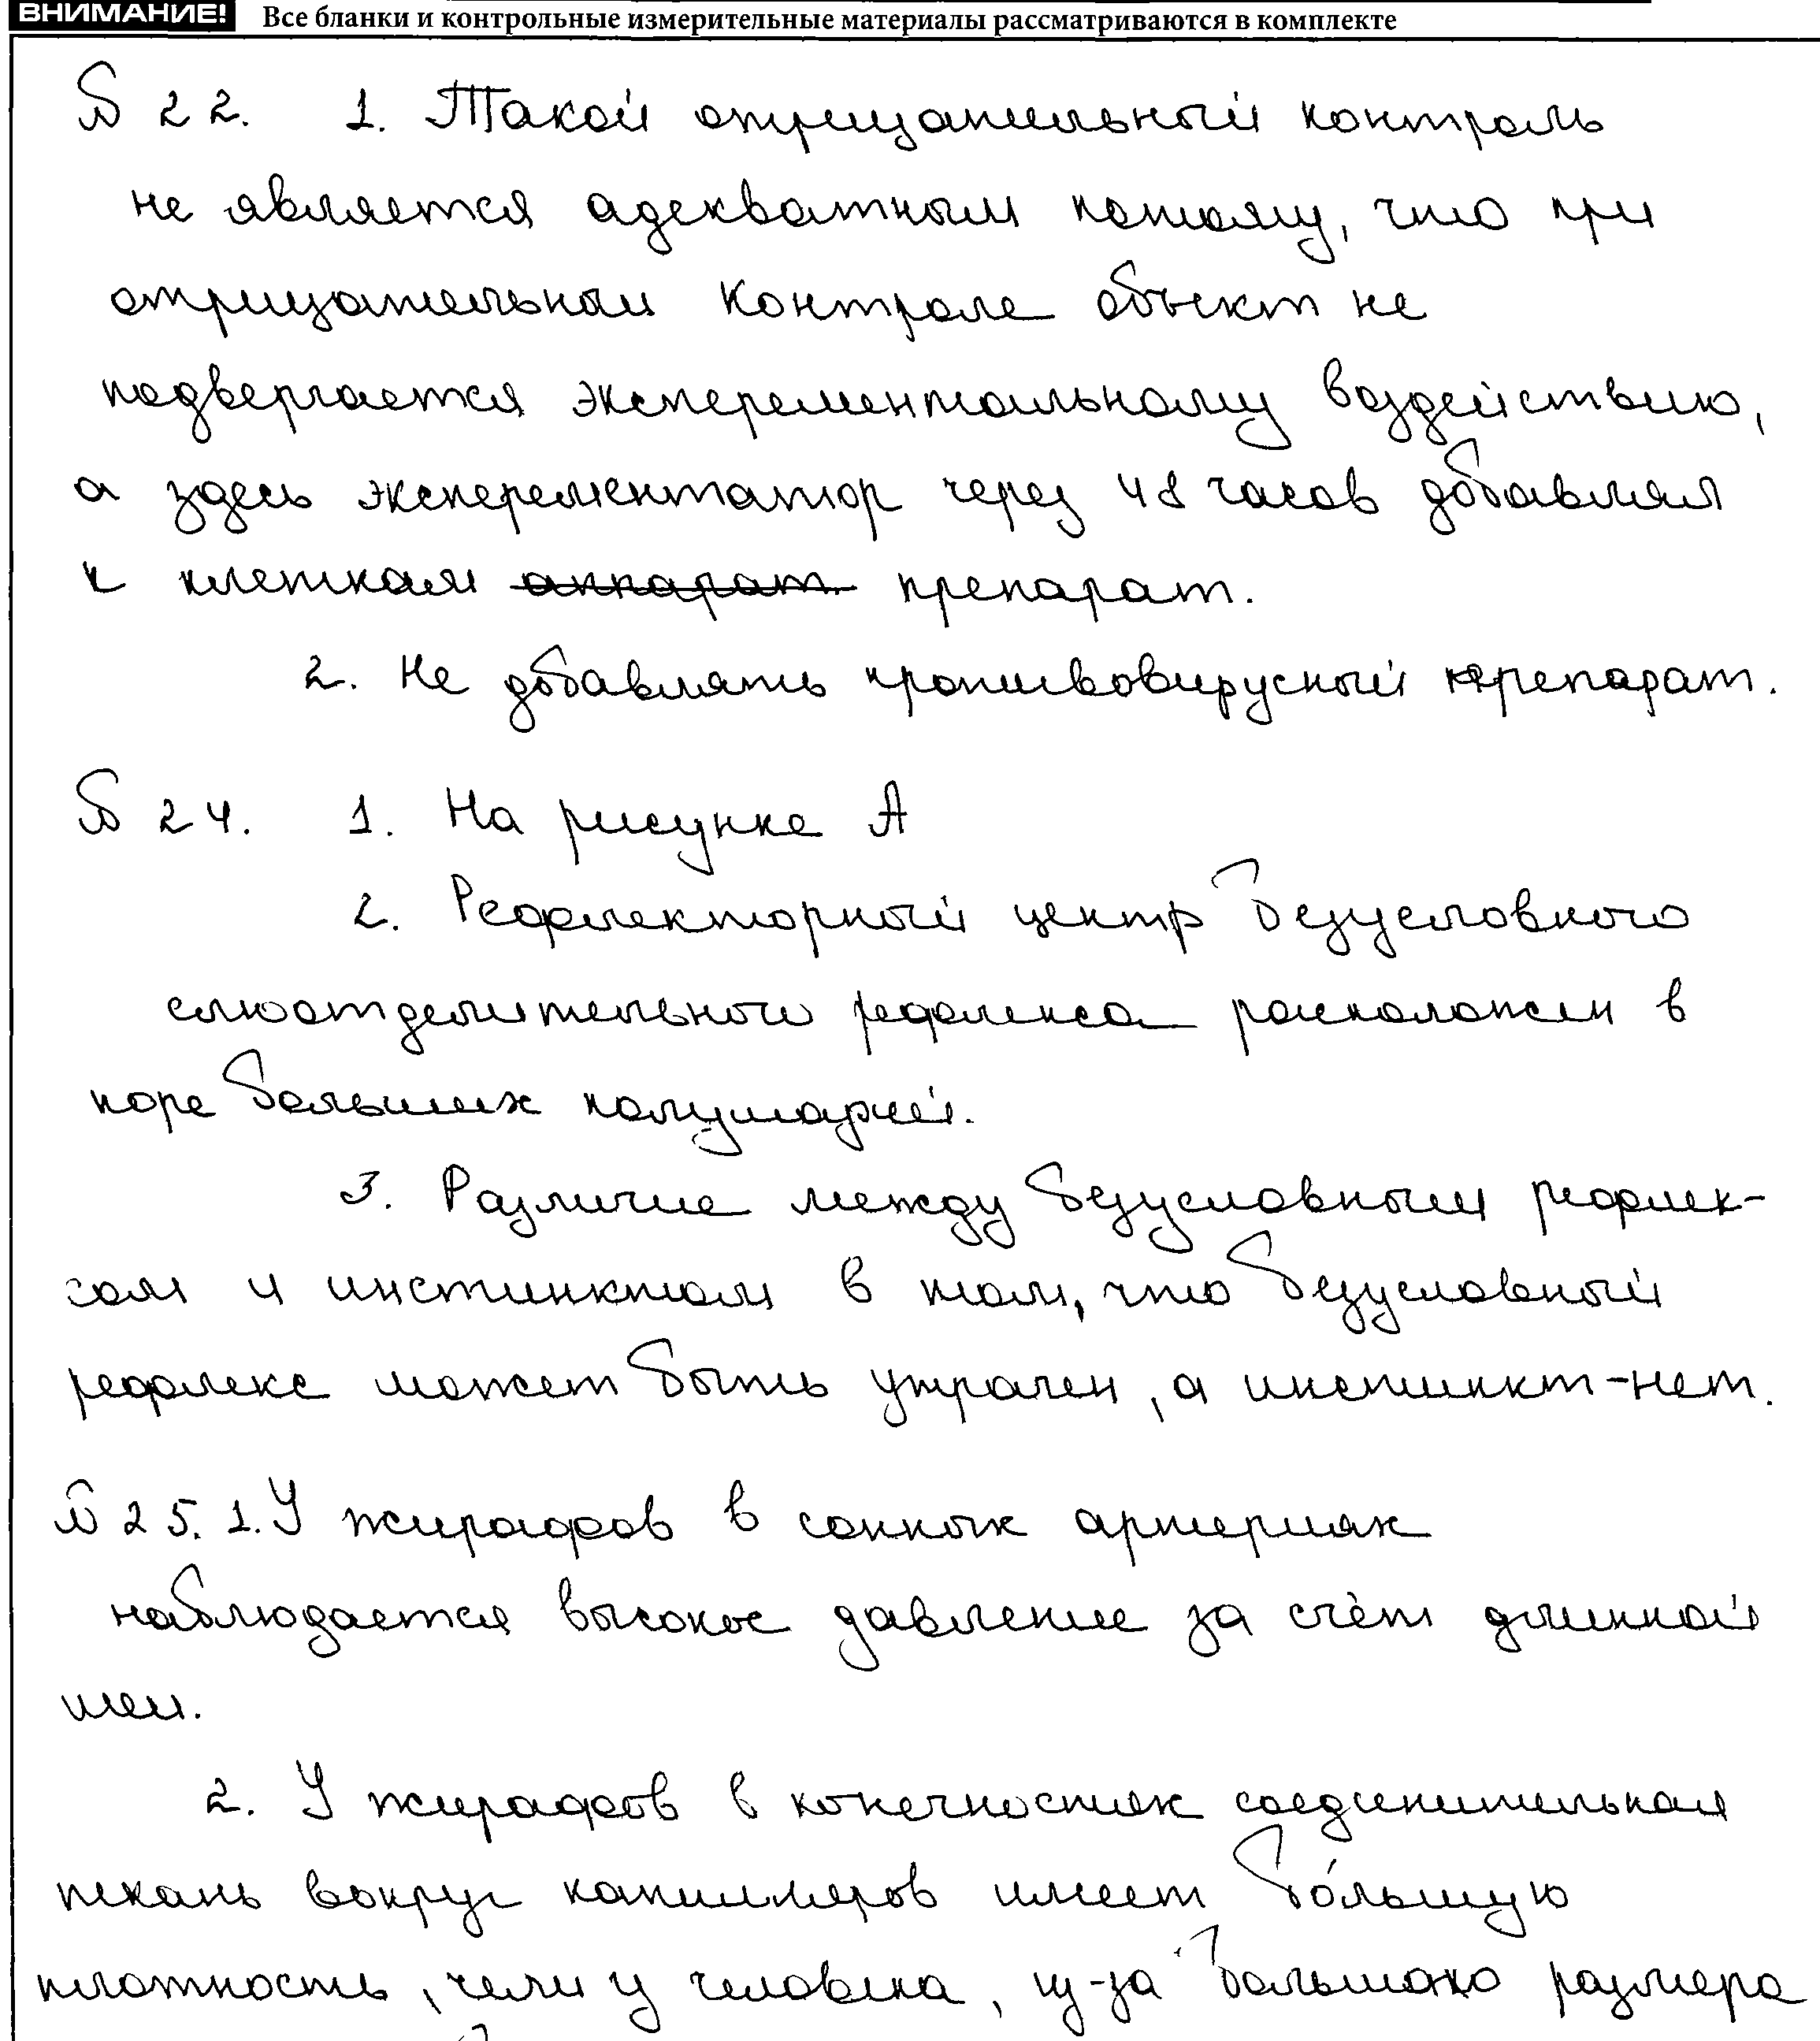 ВНИМАНИЕ! Все бланки и контрольные измерительные материалы рассматриваются в комплекте
№ 22. 1. Такой отрицательный контроль
не является адекватным потому, что при
отрицательном контроле объект не
подвергается эксперементальному воздействию,
а здесь эксперементатор через 48 часов добавлял
к клеткам аппарат препарат.
2. Не добавлять противовирусный препарат.
№ 24. 1. На рисунке А
2. Рефлекторный центр безусловного
слюоотделительного рефлекса расположен в
коре больших полушарий.
3. Различие между безусловным рефлек-
сом и инстинктом в том, что безусловный
рефлекс может быть утрачен, а инстинкт-нет.
№ 25. 1. У жирафов в сонных артериях
наблюдается высокое давление за счёт длинной
шеи.
2. У жирафов в конечностях соединительная
ткань вокруг капилляров имеет бо́льшую
плотность, чем у человека, из-за большого размера